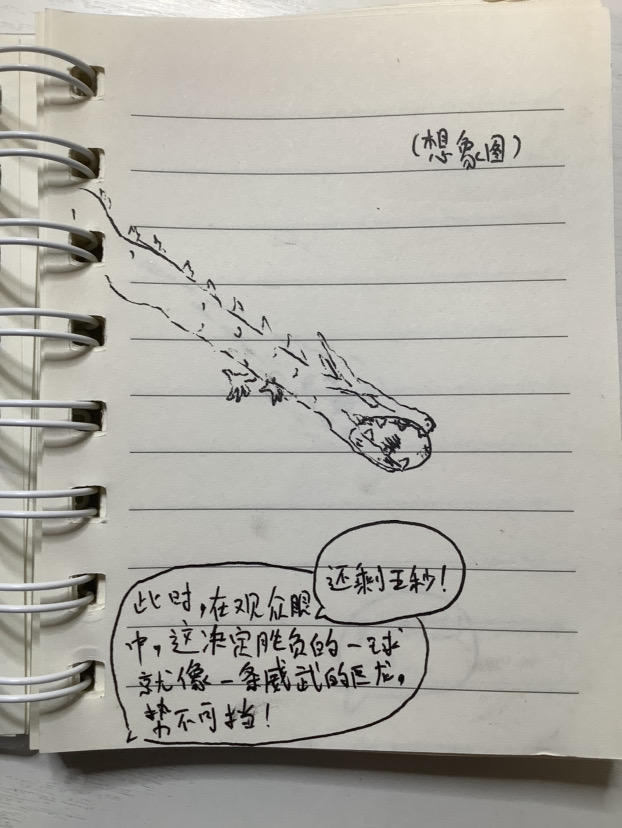 (想象图)
还剩五秒!
此时,在观众眼
中,这决定胜负的一球
就像一条威武的巨龙,
势不可挡!